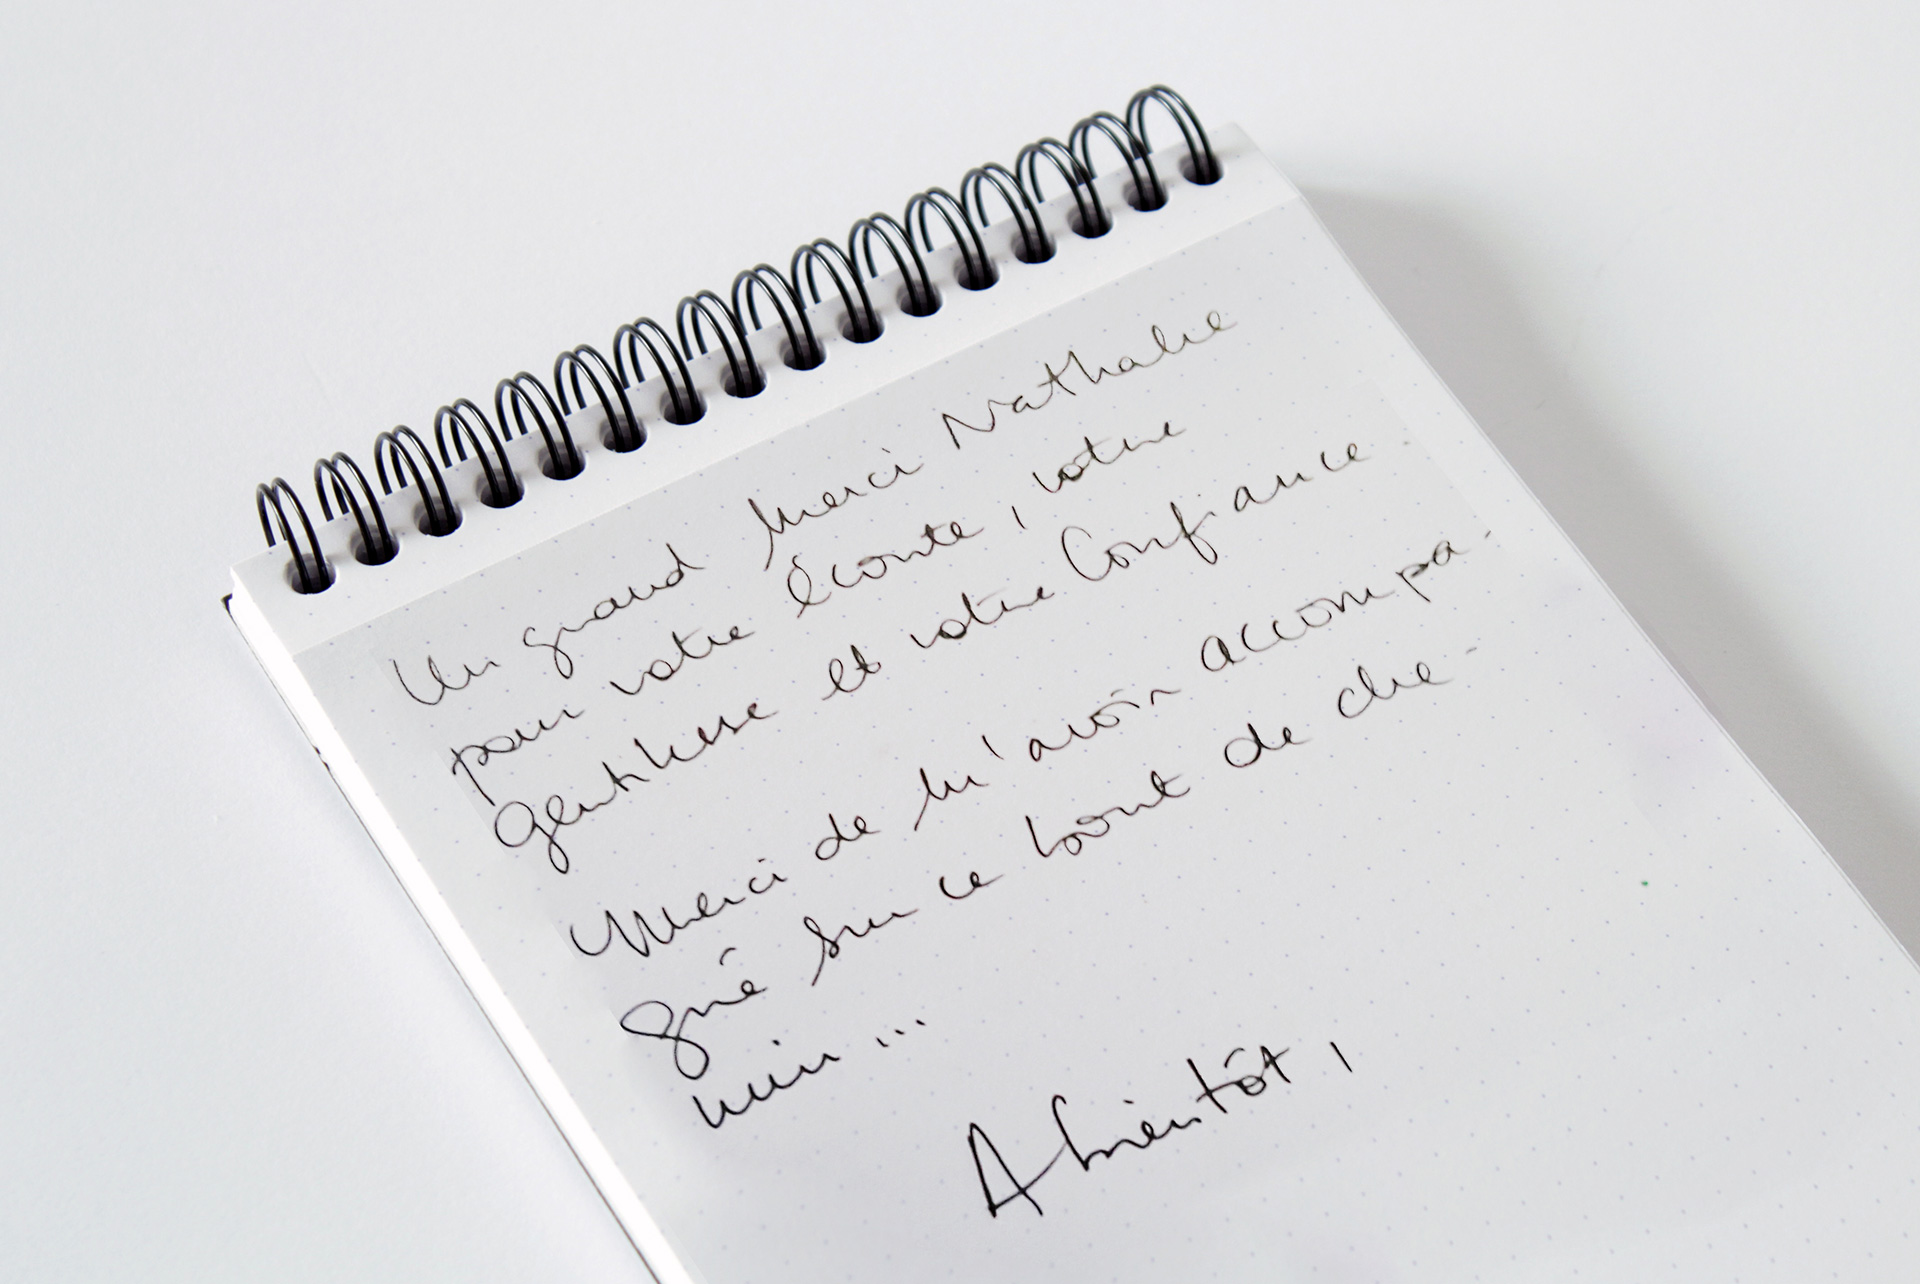 Un grand merci Nathalie
pour votre écoute, votre
gentillesse et votre Confiance
Merci de m'avoir accompa-
gné sur ce bout de che-
min ...
A bientôt,